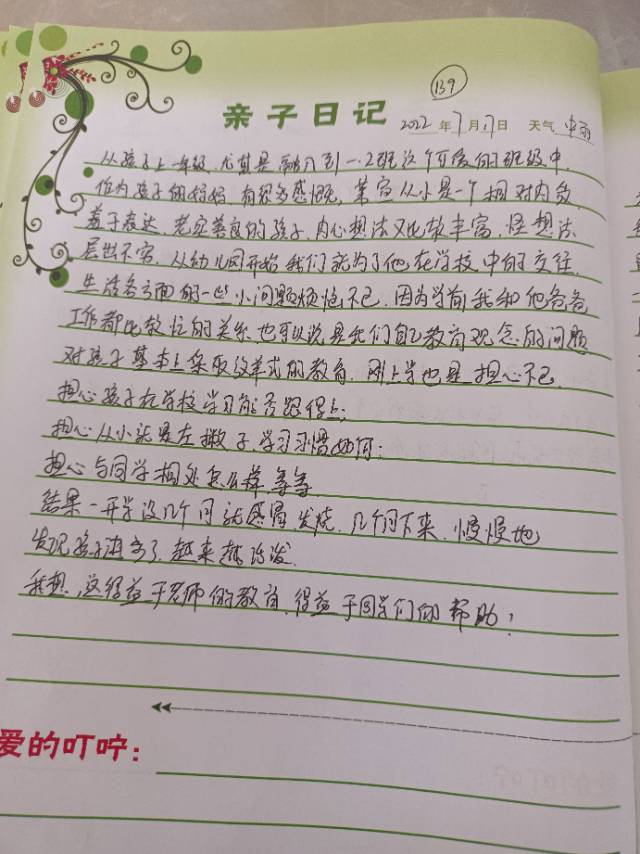 139
亲子日记 2022年7月17日 天气 中雨
从孩子上一年级,尤其是融入到一.2班这个可爱的班级中,
作为孩子的妈妈,有很多感慨,从小是一个相对内敛
善于表达,老实善良的孩子,内心想法又比较丰富,怪想法
层出不穷,从幼儿园开始我们就为了他在学校中的交往,
生活各方面的一些小问题烦恼不已,因为学前我和他爸爸
工作都比较忙的关系,也可以说是我们自己教育观念的问题
对孩子基本上采取放羊式的教育,刚上学也是担心不已,
担心孩子在学校学习能否跟得上;
担心从小就是左撇子,学习习惯如何;
担心与同学相处怎么样,等等
结果一开学没几个月就感冒发烧,几个月下来,慢慢地
发现孩子进步了,越来越活泼.
我想,这得益于老师的教育,得益于同学们的帮助,
爱的叮咛: